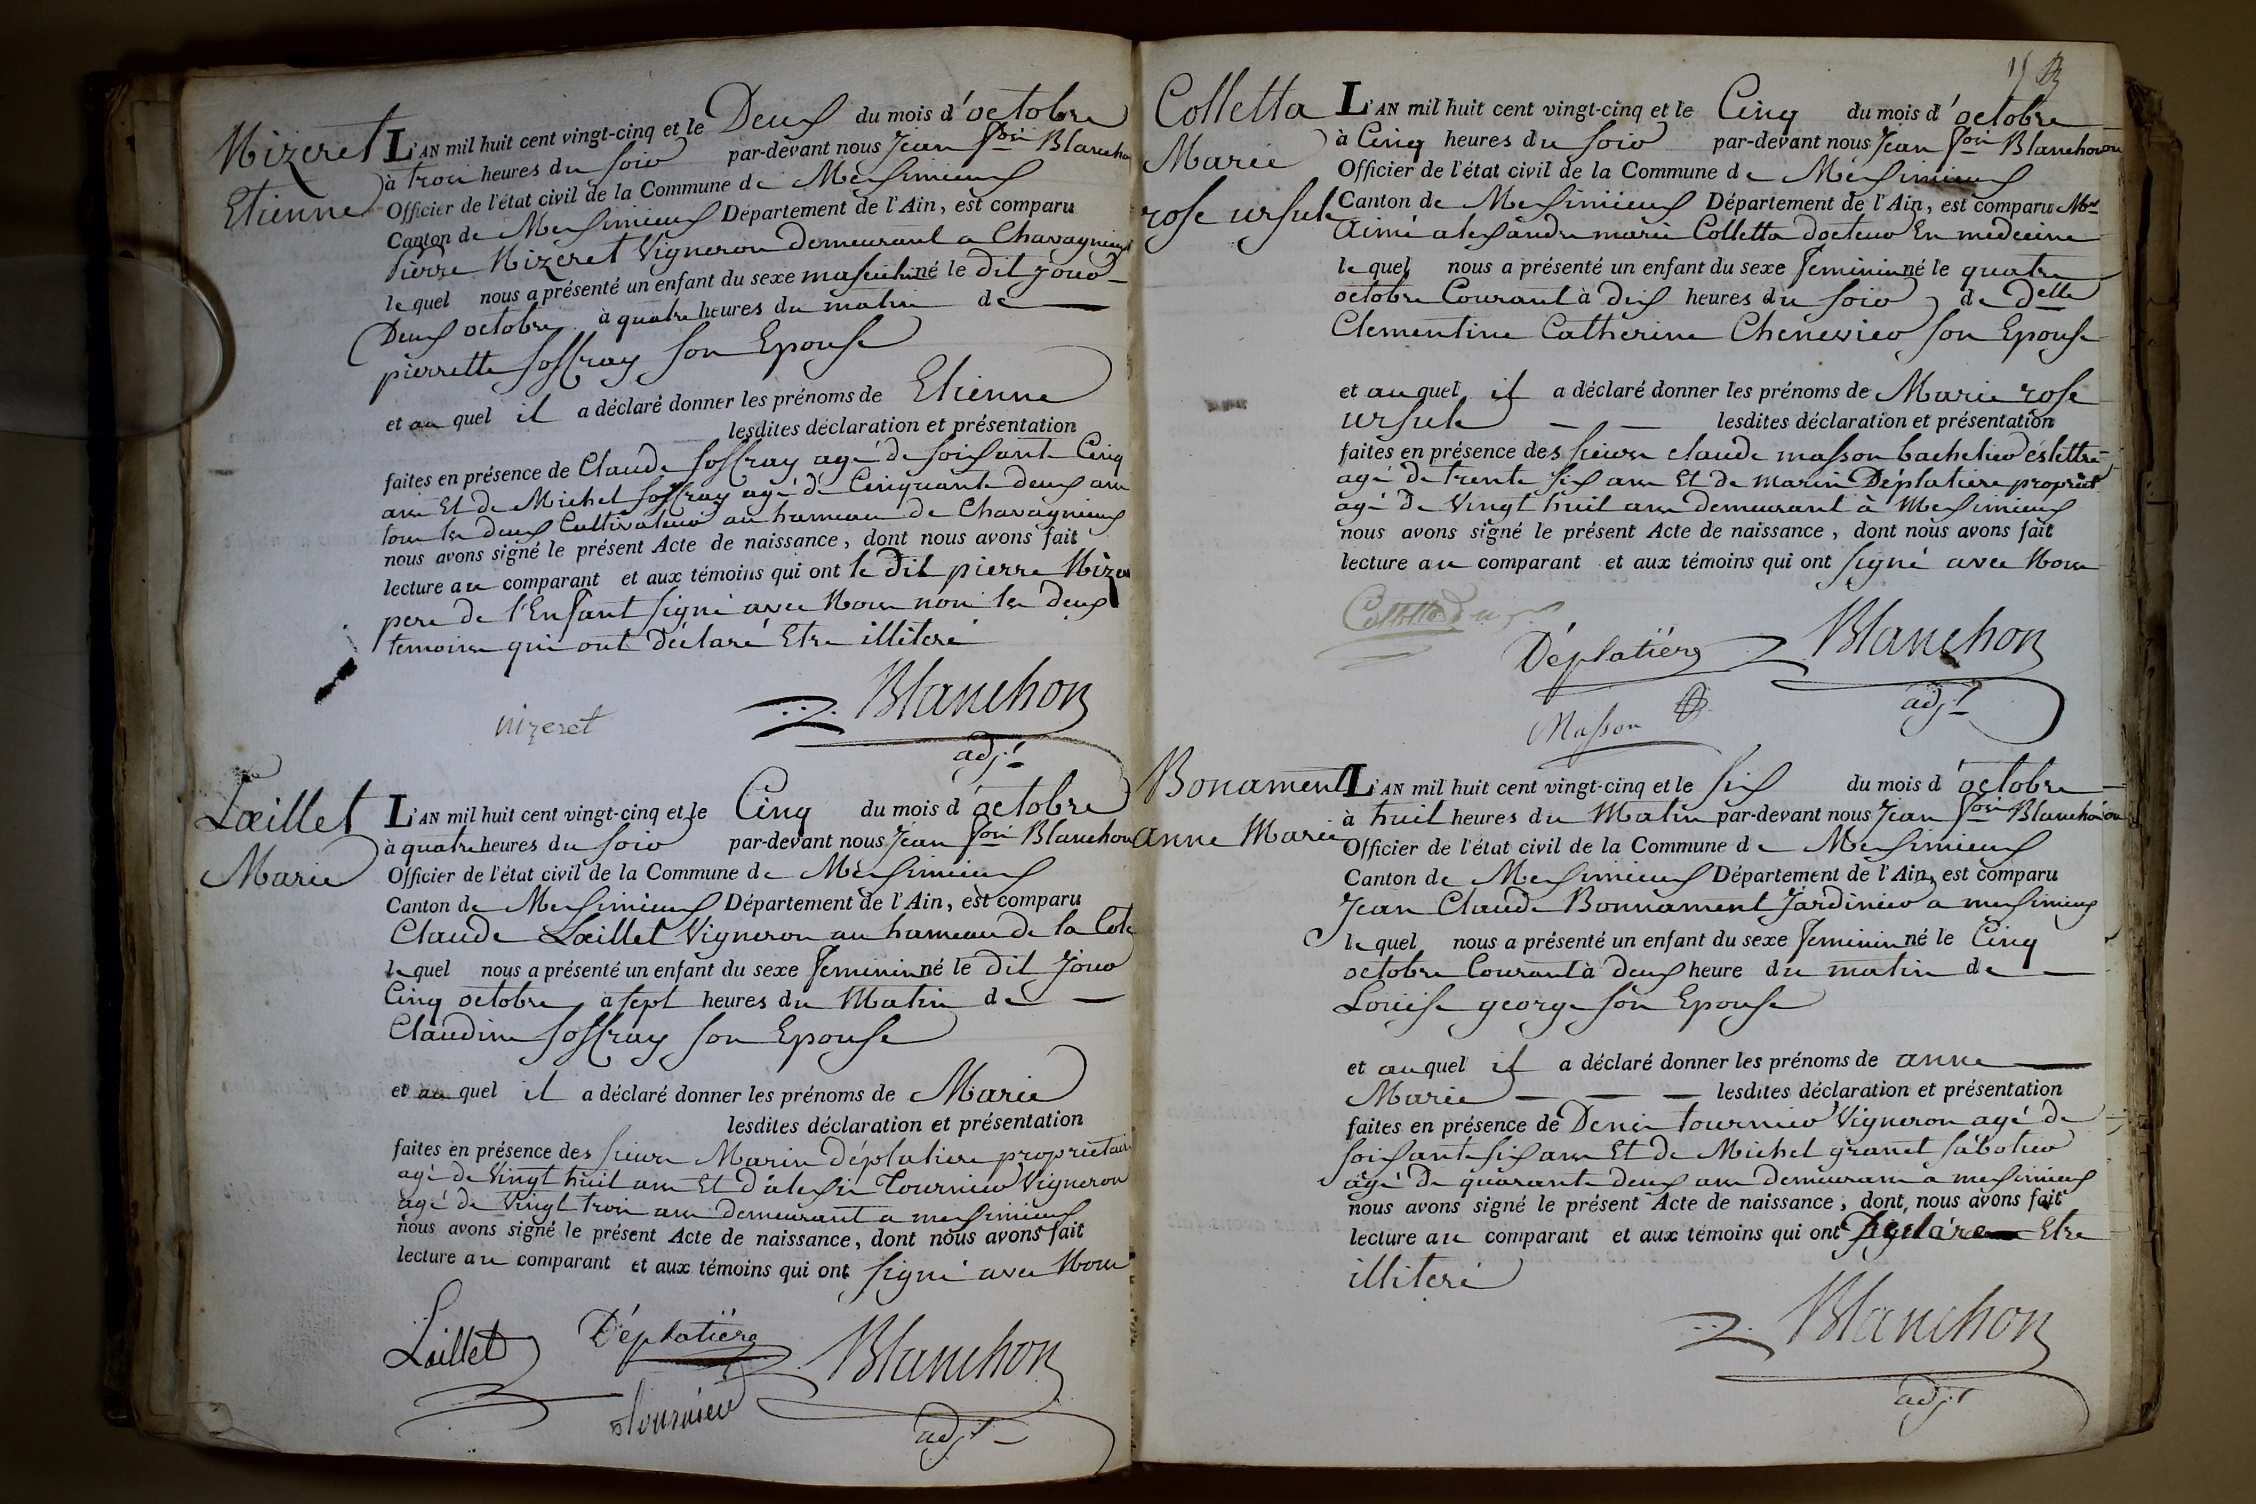 Nizeret
Etienne
L'AN mil huit cent vingt-cinq et le Deux du mois d'octobre
à trois heures du soir par-devant nous Jean fois Blanchon
Officier de l'état civil de la Commune de Messimieux
Canton de Messimieux Département de l'Ain, est comparu
Pierre Nizeret Vigneron demeurant a Chavagnieux
lequel nous a présenté un enfant du sexe masculin né le dit jour
Deux octobre à quatre heures du matin de
pierrette soffray son Epouse
et au quel il a déclaré donner les prénoms de Etienne
lesdites déclaration et présentation
faites en présence de Claude soffray agé de soixante Cinq
ans Et de Michel soffray agé de Cinquante deux ans
tous les deux Cultivateur au hameau de Chavagnieux
nous avons signé le présent Acte de naissance, dont nous avons fait
lecture au comparant et aux témoins qui ont le dit pierre Nizeret
pere de l'Enfant signé avec Nous non les deux
temoins qui ont Déclaré Etre illiteré
nizeret Blanchon
adjt
Lœillet
Marie
L'AN mil huit cent vingt-cinq et le Cinq du mois d'octobre
à quatre heures du soir par-devant nous Jean fois Blanchon
Officier de l'état civil de la Commune de Messimieux
Canton de Messimieux Département de l'Ain, est comparu
Claude Lœillet Vigneron au hameau de la Cote
lequel nous a présenté un enfant du sexe feminin né le dit jour
Cinq octobre a sept heures du Matin de
Claudine soffray son Epouse
et au quel il a déclaré donner les prénoms de Marie
lesdites déclaration et présentation
faites en présence des sieurs Marin déplatiere propriétaire
agé de Vingt huit ans Et d'alexis Tournier Vigneron
agé de Vingt trois ans demeurant a messimieux
nous avons signé le présent Acte de naissance, dont nous avons fait
lecture au comparant et aux témoins qui ont signé avec Nous
Lœillet Déplatière Blanchon
Tournier adjt
Colletta
Marie
rose ursule
L'AN mil huit cent vingt-cinq et le Cinq du mois d'octobre
à Cinq heures du soir par-devant nous Jean fois Blanchon
Officier de l'état civil de la Commune de Messimieux
Canton de Messimieux Département de l'Ain, est comparu Mr
aimé alexandre marie Colletta docteur En medecine
lequel nous a présenté un enfant du sexe feminin né le quatre
octobre Courant à dix heures du soir de Delle
Clementine Catherine Chenevier son Epouse
et au quel il a déclaré donner les prénoms de Marie rose
ursule lesdites déclaration et présentation
faites en présence des sieurs claude masson bachelier ès lettre
agé de trente six ans Et de marin Déplatiere propriét
agé de Vingt huit ans demeurant à Messimieux
nous avons signé le présent Acte de naissance, dont nous avons fait
lecture au comparant et aux témoins qui ont signé avec Nous
Colletta
Déplatière Blanchon
Masson adjt
Bonament
anne Marie
L'AN mil huit cent vingt-cinq et le six du mois d'octobre
à huit heures du Matin par-devant nous Jean fois Blanchon
Officier de l'état civil de la Commune de Messimieux
Canton de Messimieux Département de l'Ain, est comparu
Jean Claude Bonnament Jardinier a messimieux
lequel nous a présenté un enfant du sexe feminin né le Cinq
octobre Courant à deux heure du matin de
Louise george son Epouse
et au quel il a déclaré donner les prénoms de anne
Marie lesdites déclaration et présentation
faites en présence de Denis tournier Vigneron agé de
soixante six ans Et de Michel granet sabotier
agé de quarante deux ans demeurant a messimieux
nous avons signé le présent Acte de naissance, dont nous avons fait
lecture au comparant et aux témoins qui ont Déclaré Etre
illiteré
Blanchon
adjt